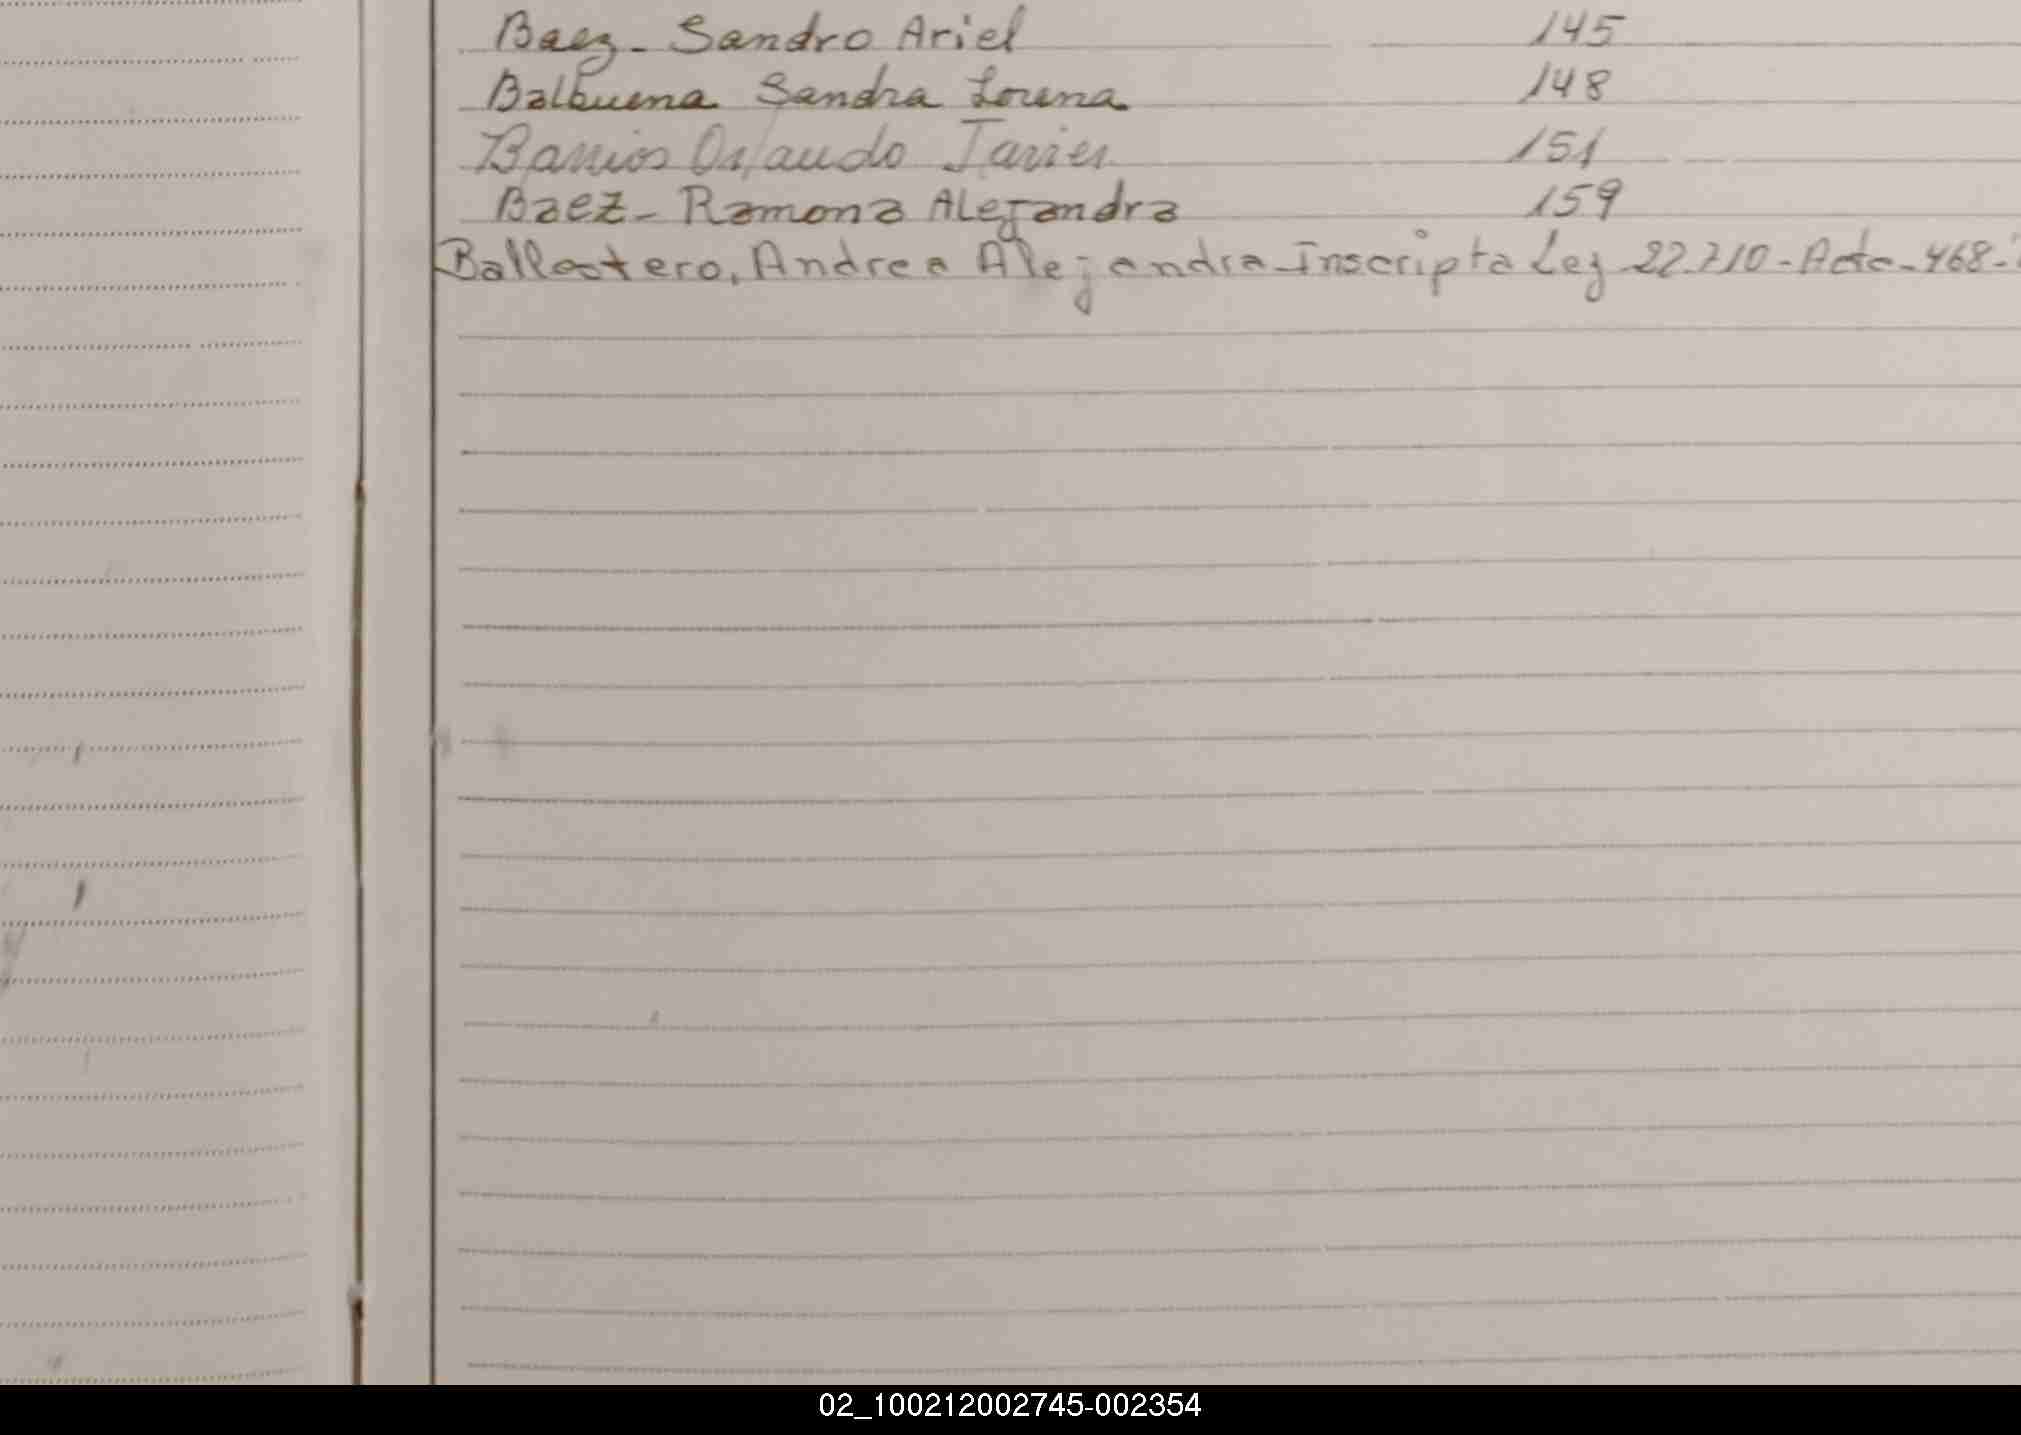 Baez - Sandro Ariel 145
Balbuena Sandra Lorena 148
Barrios Orlando Javier 151
Baez - Ramona Alejandra 159
Ballestero, Andrea Alejandra - Inscripta Ley 22.710 - Acta - 468 -
02_100212002745-002354